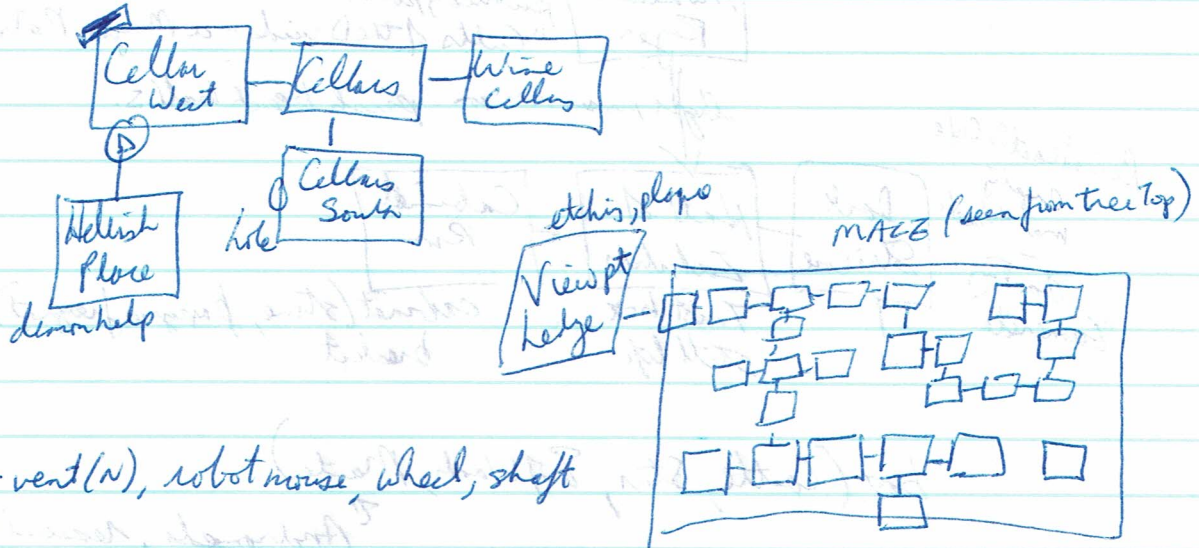 Cellar
West
Cellars
Wine
Cellars
Cellars
South
hole
Hellish
Place
demon help
Viewpt
Ledge
MAZE (seen from tree top)
vent(N), robot mouse, wheel, shaft